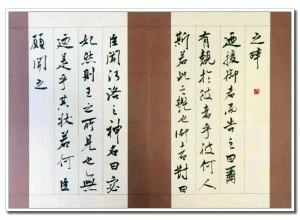 之畔
迺援御者而告之曰爾
有覿於彼者乎彼何人
斯若此之艷也御者對曰
臣聞河洛之神名曰宓
妃然則王之所見也無
迺是乎其狀若何臣
願聞之